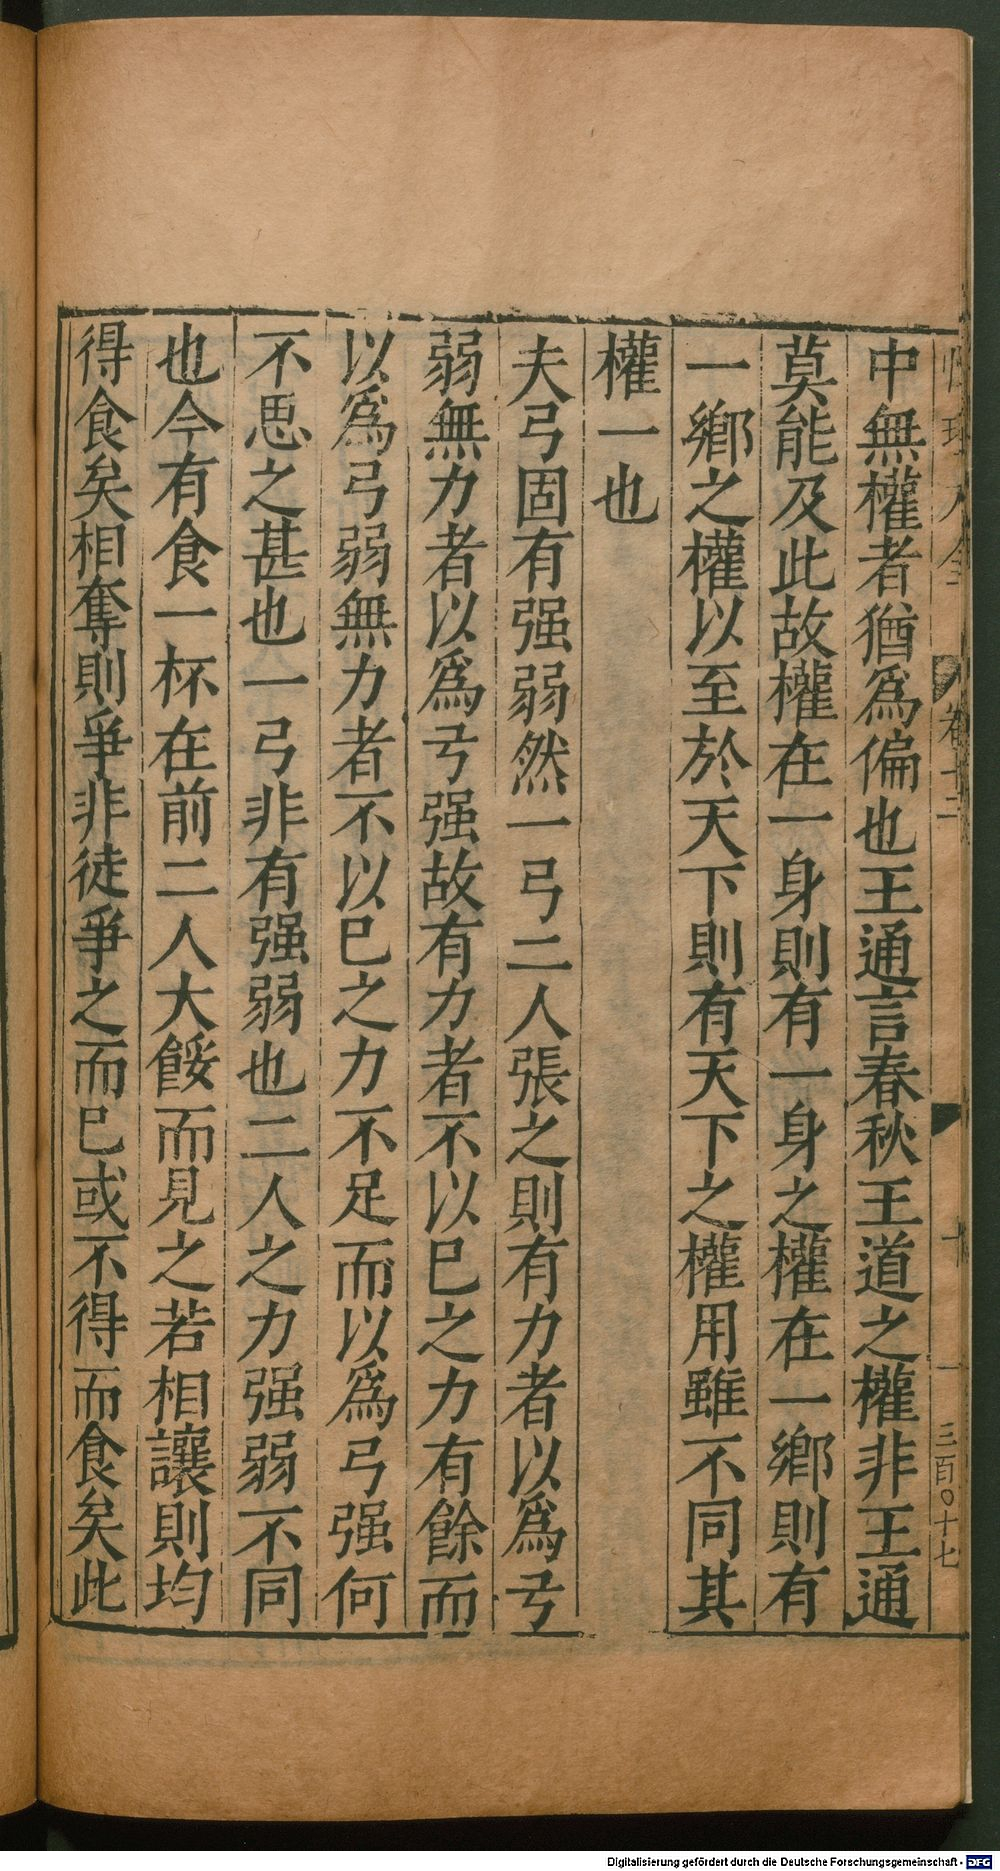 中無權者猶爲偏也王通言春秋王道之權非王通
莫能及此故權在一身則有一身之權在一鄉則有
一鄉之權以至於天下則有天下之權用雖不同其
權一也
夫弓固有强弱然一弓二人張之則有力者以爲弓
弱無力者以爲弓强故有力者不以已之力有餘而
以爲弓弱無力者不以已之力不足而以爲弓强何
不思之甚也一弓非有强弱也二人之力强弱不同
也今有食一杯在前二人大餒而見之若相讓則均
得食矣相奪則爭非徒爭之而已或不得而食矣此
卷十二
三百〇十七
Digitalisierung gefördert durch die Deutsche Forschungsgemeinschaft - DFG